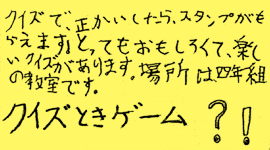 クイズで、正かいしたら、スタンプがも
らえます。とってもおもしろくて、楽し
いクイズがあります。場所は四年組
の教室です。
クイズときゲーム?!